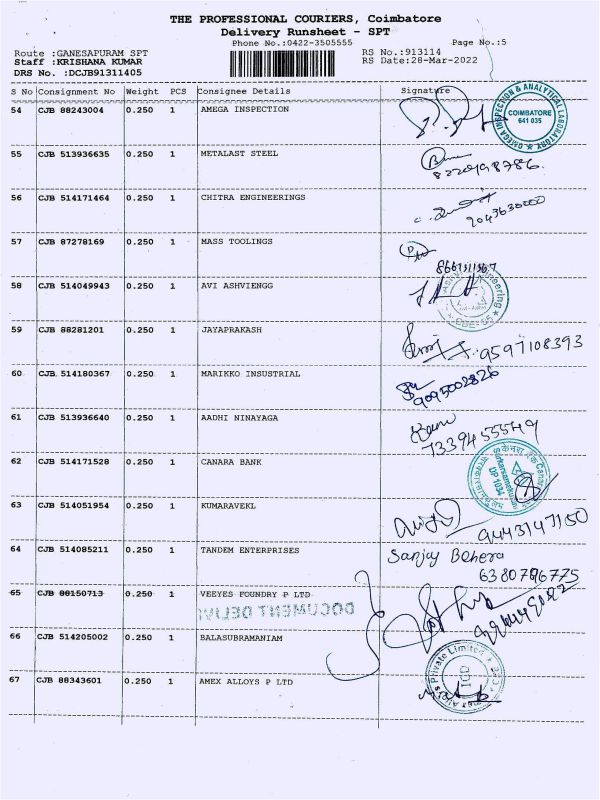 THE PROFESSIONAL COURIERS, Coimbatore
Delivery Runsheet - SPT
Phone No.:0422-3505555 Page No.:5
Route :GANESAPURAM SPT RS No.:913114
Staff :KRISHANA KUMAR RS Date:28-Mar-2022
DRS No. :DCJB91311405
S No Consignment No Weight PCS Consignee Details Signature
54 CJB 88243004 0.250 1 AMEGA INSPECTION
OMEGA INSPECTION & ANALYTICAL LABORATORY
COIMBATORE
641 035
55 CJB 513936635 0.250 1 METALAST STEEL
8220498786
56 CJB 514171464 0.250 1 CHITRA ENGINEERINGS
9043630000
57 CJB 87278169 0.250 1 MASS TOOLINGS
58 CJB 514049943 0.250 1 AVI ASHVIENGG
59 CJB 88281201 0.250 1 JAYAPRAKASH
9597108393
60 CJB 514180367 0.250 1 MARIKKO INSUSTRIAL
9095002826
61 CJB 513936640 0.250 1 AADHI NINAYAGA
7339455549
62 CJB 514171528 0.250 1 CANARA BANK
DP 1034
63 CJB 514051954 0.250 1 KUMARAVEKL
9443147150
64 CJB 514085211 0.250 1 TANDEM ENTERPRISES
Sanjay Behera
6380796775
65 CJB 88150713 0.250 1 VEEYES FOUNDRY P LTD
66 CJB 514205002 0.250 1 BALASUBRAMANIAM
67 CJB 88343601 0.250 1 AMEX ALLOYS P LTD
Private Limited